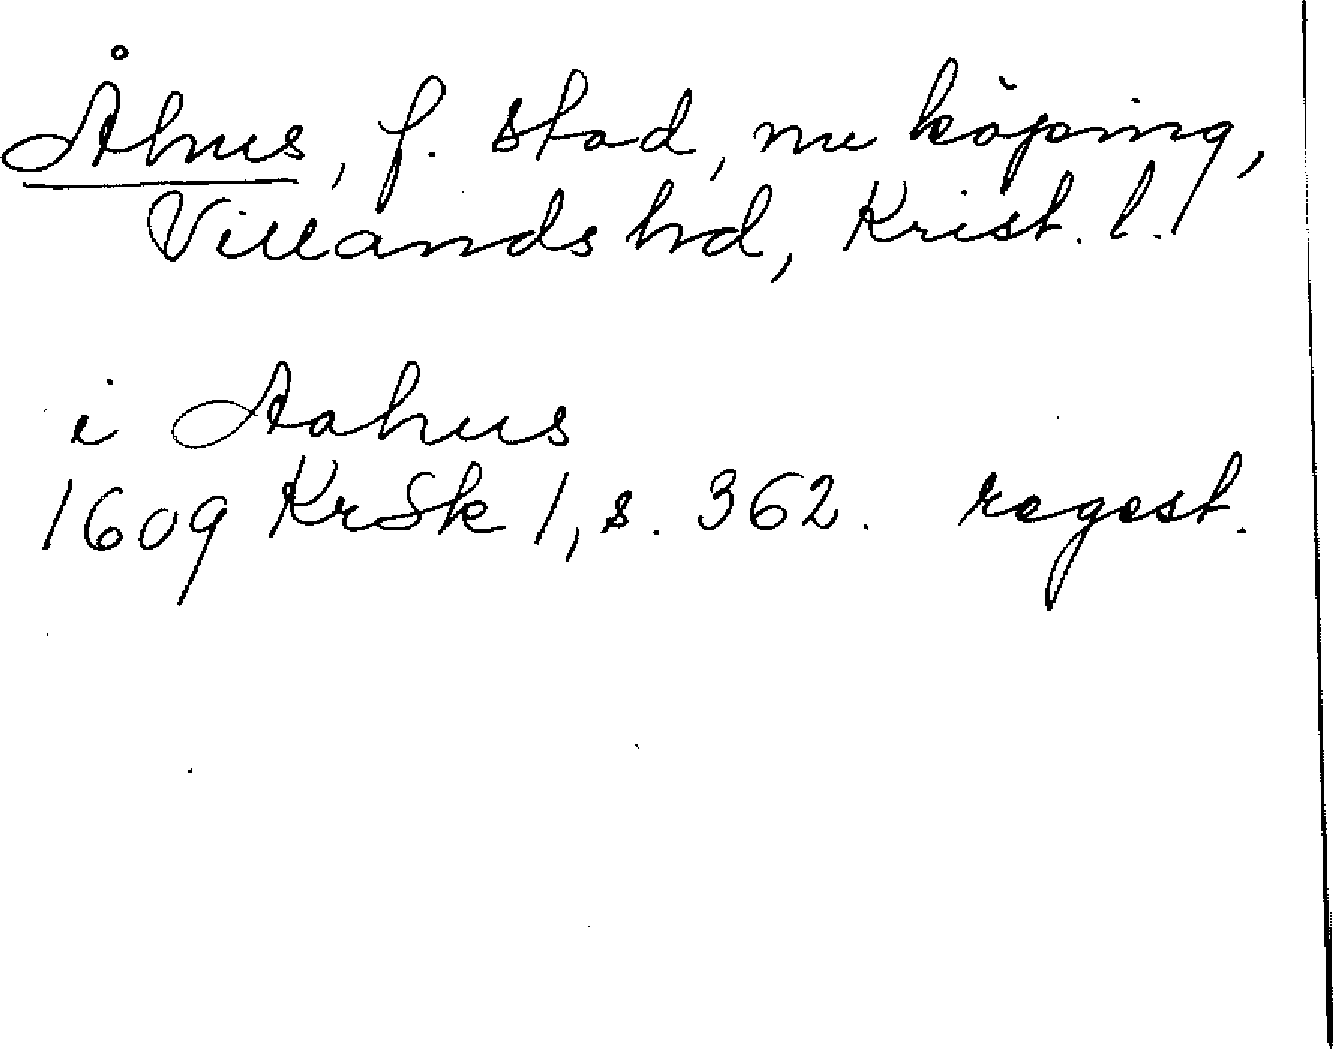 Åhus, f. stad, nu köping,
Villands hd, Krist. l.
i Aahus
1609 KrSk 1, s. 362. regest.